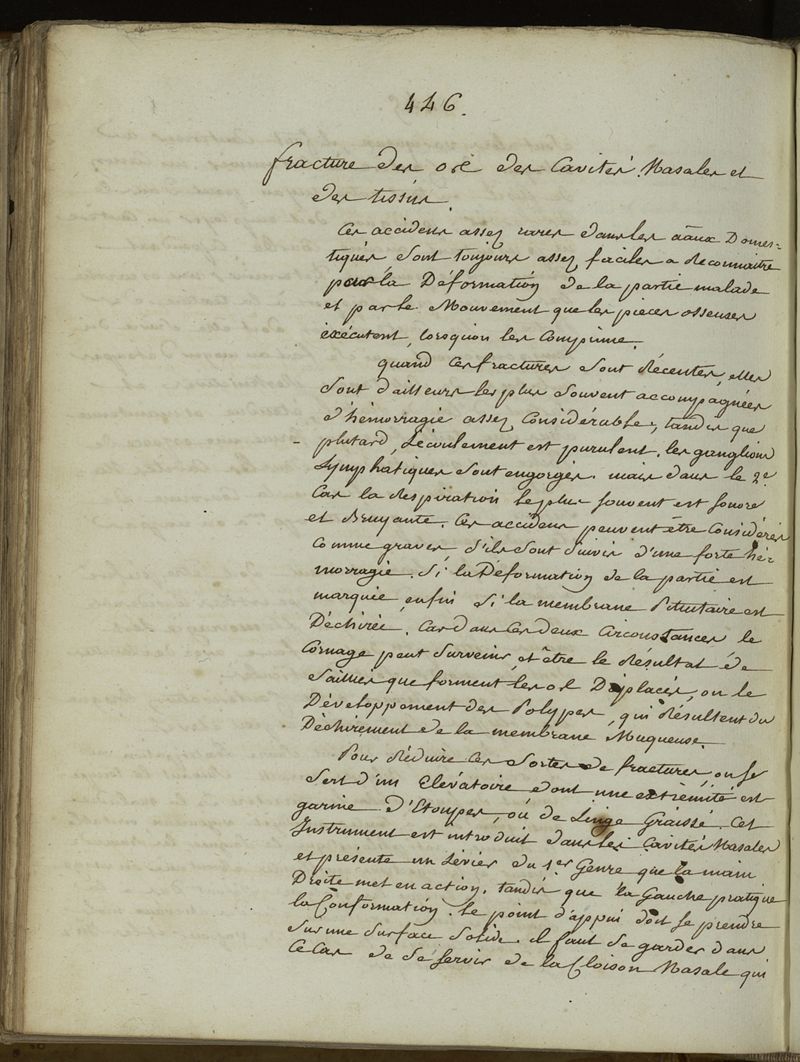 446.
fracture des os des Cavités Nasales et
des tissus.
Ces accidens assez rares dans les aãux Domes-
tiques sont toujours assez faciles a Reconnaitre
par la Déformation de la partie malade
et par le Mouvement que les pieces osseuses
exécutent, lorsqu'on les Comprime.
quand ces fractures sont Récentes, elles
sont d'ailleurs les plus souvent accompagnées
d'hémorragie assez Considérable, tandis que
plutard, l'écoulement est purulent, les ganglions
Lymphatiques sont engorgés. mais dans le 2e
Cas la Respiration le plus souvent est sonore
et Bruyante. Ces accidens peuvent être Considérés
Comme graves, s'ils sont suivis d'une forte hé-
morragie. Si la Déformation de la partie est
marquée, enfin si la membrane Pituitaire est
Déchirée. Car dans ces deux Circonstances le
Cornage peut survenir, et être le Résultat de
saillies que forment les os Déplacés, ou le
Développement des Polypes, qui Résultent du
Déchirement de la membrane Muqueuse.
Pour Réduire ces sortes de fractures, on se
sert d'un Elevatoire dont une extrémité est
garnie d'Etoupes, ou de Linge Graissé. Cet
Instrument est introduit dans les Cavités Nasales
et présente un Lévier du 1er Genre que la main
Droite met en action, tandis que la Gauche pratique
la Conformation. le point d'appui doit se prendre
sur une surface solide. il faut se garder dans
ce Cas de se servir de la Cloison Nasale qui